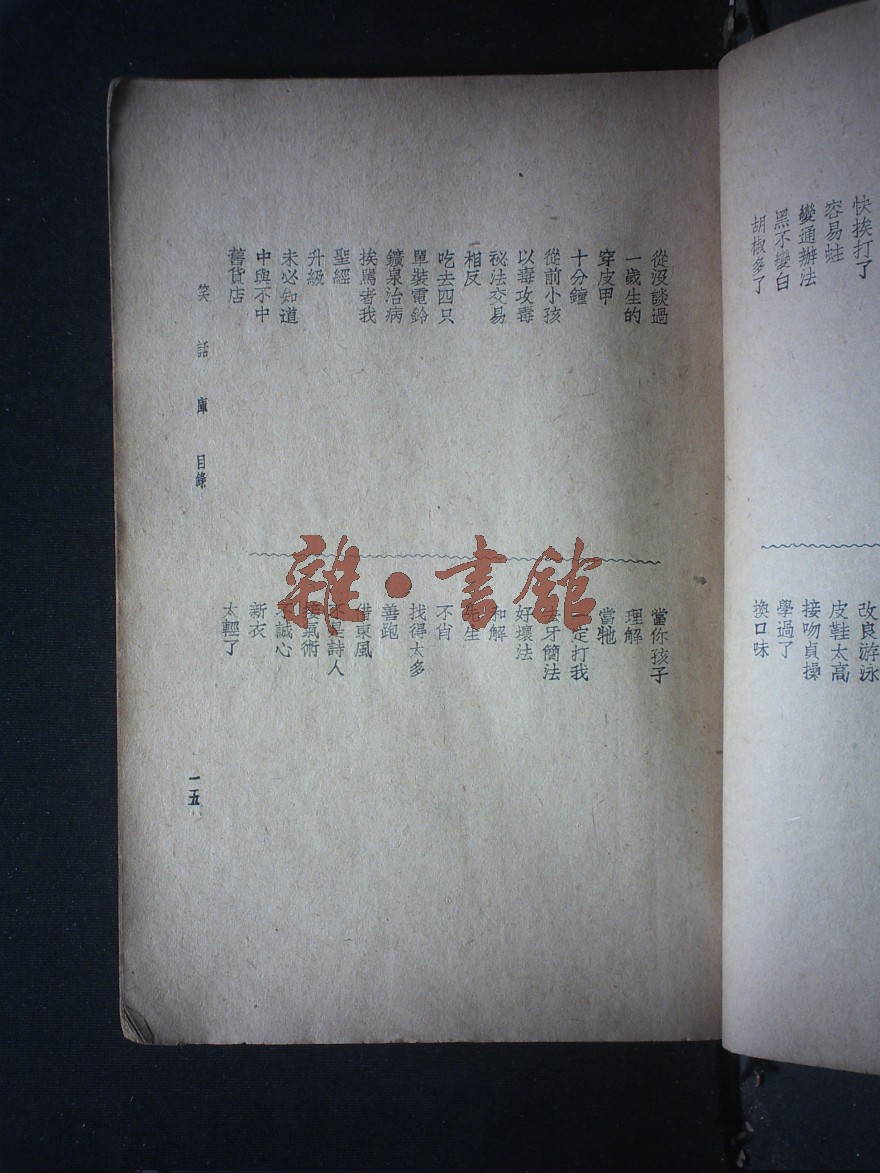 快挨打了
容易蛀
變通辦法
黑不變白
胡椒多了
改良游泳
皮鞋太高
接吻貞操
學過了
換口味
從沒談過
一歲生的
穿皮甲
十分鐘
從前小孩
以毒攻毒
祕法交易
相反
吃去四只
單裝電鈴
鑛泉治病
挨罵者我
聖經
升級
未必知道
中與不中
舊貨店
當你孩子
理解
當牠
一定打我
去牙簡法
好壞法
和解
先生
不肖
找得太多
善跑
借東風
不是詩人
接氣術
不誠心
新衣
太輕了
笑話庫目錄
一五
雜·書館